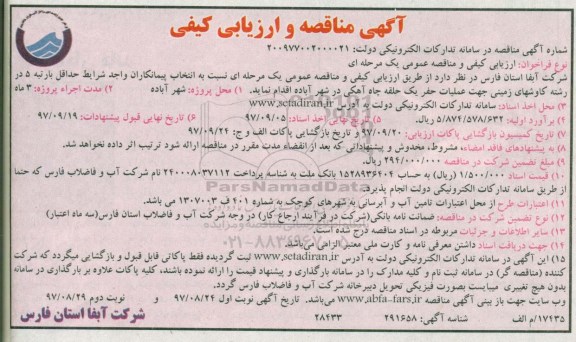 آگهی مناقصه و ارزیابی کیفی
شماره آگهی مناقصه در سامانه تدارکات الکترونیکی دولت: ۲۰۰۹۷۷۰۰۲۰۰۰۰۲۱
نوع فراخوان: ارزیابی کیفی و مناقصه عمومی یک مرحله ای
شرکت آبفا استان فارس در نظر دارد از طریق ارزیابی کیفی و مناقصه عمومی یک مرحله ای نسبت به انتخاب پیمانکاران واجد شرایط حداقل بارتبه ۵ در
رشته کاوشهای زمینی جهت عملیات حفر یک حلقه چاه آهکی در شهر آباده اقدام نماید. ۱) محل پروژه: شهر آباده ۲) مدت اجراء پروژه: ۳ ماه
۳) محل اخذ اسناد: سامانه تدارکات الکترونیکی دولت به آدرس www.setadiran.ir
۴) برآورد اولیه: ۵/۸۷۴/۵۷۸/۶۳۲ ریال. ۵) تاریخ نهایی اخذ اسناد: ۹۷/۰۹/۰۵ ۶) تاریخ نهایی قبول پیشنهادات: ۹۷/۰۹/۱۹
۷) تاریخ کمیسیون بازگشایی پاکات ارزیابی: ۹۷/۰۹/۲۰ و تاریخ بازگشایی پاکات الف و ج: ۹۷/۰۹/۲۴
۸) به پیشنهادهای فاقد امضاء، مشروط، مخدوش و پیشنهاداتی که بعد از انقضاء مدت مقرر در مناقصه ارائه شود ترتیب اثر داده نخواهد شد.
۹) مبلغ تضمین شرکت در مناقصه ۲۹۴/۰۰۰/۰۰۰ ریال.
۱۰) قیمت اسناد ۱/۵۰۰/۰۰۰ (ریال) به حساب ۱۵۲۸۹۳۶۴۰۴ بانک ملت به شناسه پرداخت ۲۴۰۰۰۸۰۳۷۱۱۲ نام شرکت آب و فاضلاب فارس که حتما
از طریق سامانه تدارکات الکترونیکی دولت انجام پذیرد.
۱۱) اعتبارات طرح از محل اعتبارات تامین آب و آبرسانی به شهرهای کوچک به شماره ۴۰۱ ف ۱۳۰۷۰۰۳ می باشد.
۱۲) نوع تضمین شرکت در مناقصه: ضمانت نامه بانکی(شرکت در فرآیند ارجاع کار) در وجه شرکت آب و فاضلاب استان فارس(سه ماه اعتبار)
۱۳) سایر اطلاعات و جزئیات مربوطه در اسناد مناقصه درج شده است.
۱۴) جهت دریافت اسناد داشتن معرفی نامه و کارت ملی معتبر الزامی می باشد.
۱۵) این آگهی در سامانه تدارکات الکترونیکی دولت به آدرس www.setadiran.ir ثبت گردیده فقط پاکاتی قابل قبول و بازگشایی میگردد که شرکت
کننده (مناقصه گر) در سامانه ثبت نام و کلیه مدارک را در سامانه بارگذاری و پیشنهاد قیمت را ارائه نموده باشند، کلیه پاکات علاوه بر بارگذاری در سامانه
بدون هیچ تغییری میبایست بصورت فیزیکی تحویل دبیرخانه شرکت آب و فاضلاب فارس گردد.
وب سایت جهت باز بینی آگهی مناقصه www.abfa-fars.ir می‌باشد. تاریخ آگهی نوبت اول ۹۷/۰۸/۲۴ و نوبت دوم ۹۷/۰۸/۲۹
۱۷۴۳۵/م الف شناسه آگهی: ۲۹۱۶۵۸ ۲۸۴۳۳ شرکت آبفا استان فارس
ParsNamadData
۰۲۱-۸۸۳۴۹۶۷۰-۵